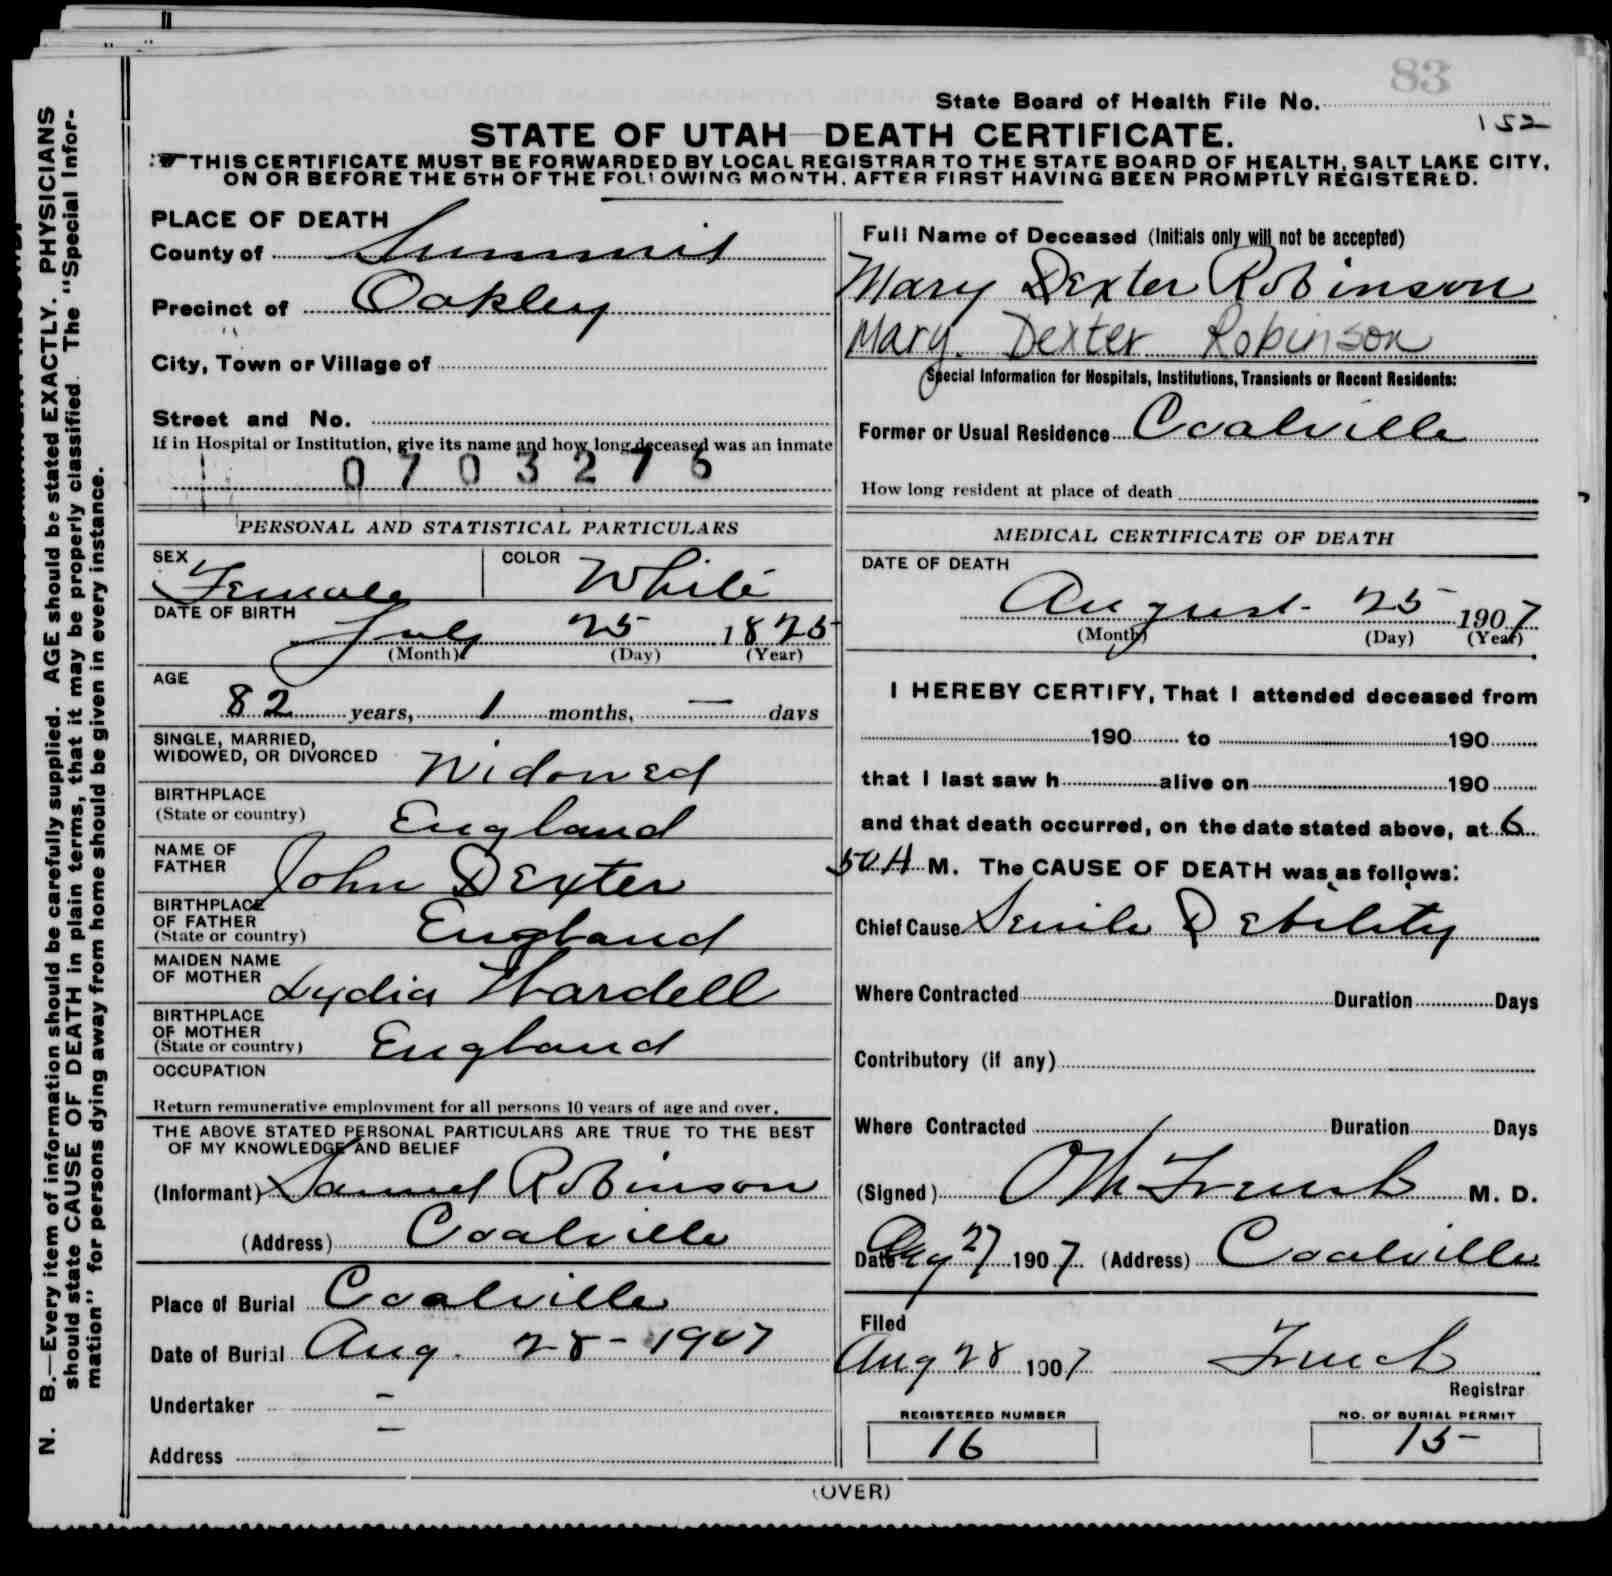 83
State Board of Health File No.
152
STATE OF UTAH—DEATH CERTIFICATE.
THIS CERTIFICATE MUST BE FORWARDED BY LOCAL REGISTRAR TO THE STATE BOARD OF HEALTH, SALT LAKE CITY,
ON OR BEFORE THE 5TH OF THE FOLLOWING MONTH, AFTER FIRST HAVING BEEN PROMPTLY REGISTERED.
N. B.—Every item of information should be carefully supplied. AGE should be stated EXACTLY. PHYSICIANS
should state CAUSE OF DEATH in plain terms, that it may be properly classified. The "Special Infor-
mation" for persons dying away from home should be given in every instance.
PLACE OF DEATH
County of Summit
Precinct of Oakley
City, Town or Village of
Street and No.
If in Hospital or Institution, give its name and how long deceased was an inmate
0703276
PERSONAL AND STATISTICAL PARTICULARS
SEX Female COLOR White
DATE OF BIRTH
July 25 1825
(Month) (Day) (Year)
AGE
82 years, 1 months, — days
SINGLE, MARRIED,
WIDOWED, OR DIVORCED Widowed
BIRTHPLACE
(State or country) England
NAME OF
FATHER John Dexter
BIRTHPLACE
OF FATHER
(State or country) England
MAIDEN NAME
OF MOTHER Lydia Wardell
BIRTHPLACE
OF MOTHER
(State or country) England
OCCUPATION
Return remunerative employment for all persons 10 years of age and over.
THE ABOVE STATED PERSONAL PARTICULARS ARE TRUE TO THE BEST
OF MY KNOWLEDGE AND BELIEF
(Informant) Samuel Robinson
(Address) Coalville
Place of Burial Coalville
Date of Burial Aug. 28 - 1907
Undertaker -
Address —
Full Name of Deceased (Initials only will not be accepted)
Mary Dexter Robinson
Mary Dexter Robinson
Special Information for Hospitals, Institutions, Transients or Recent Residents:
Former or Usual Residence Coalville
How long resident at place of death
MEDICAL CERTIFICATE OF DEATH
DATE OF DEATH
August 25 1907
(Month) (Day) (Year)
I HEREBY CERTIFY, That I attended deceased from
190 to 190
that I last saw h alive on 190
and that death occurred, on the date stated above, at 6
50 A M. The CAUSE OF DEATH was as follows:
Chief Cause Senile Debility
Where Contracted Duration Days
Contributory (if any)
Where Contracted Duration Days
(Signed) M. D.
Date Aug 27 1907 (Address) Coalville
Filed
Aug 28 1907
Registrar
REGISTERED NUMBER
16
NO. OF BURIAL PERMIT
15
(OVER)